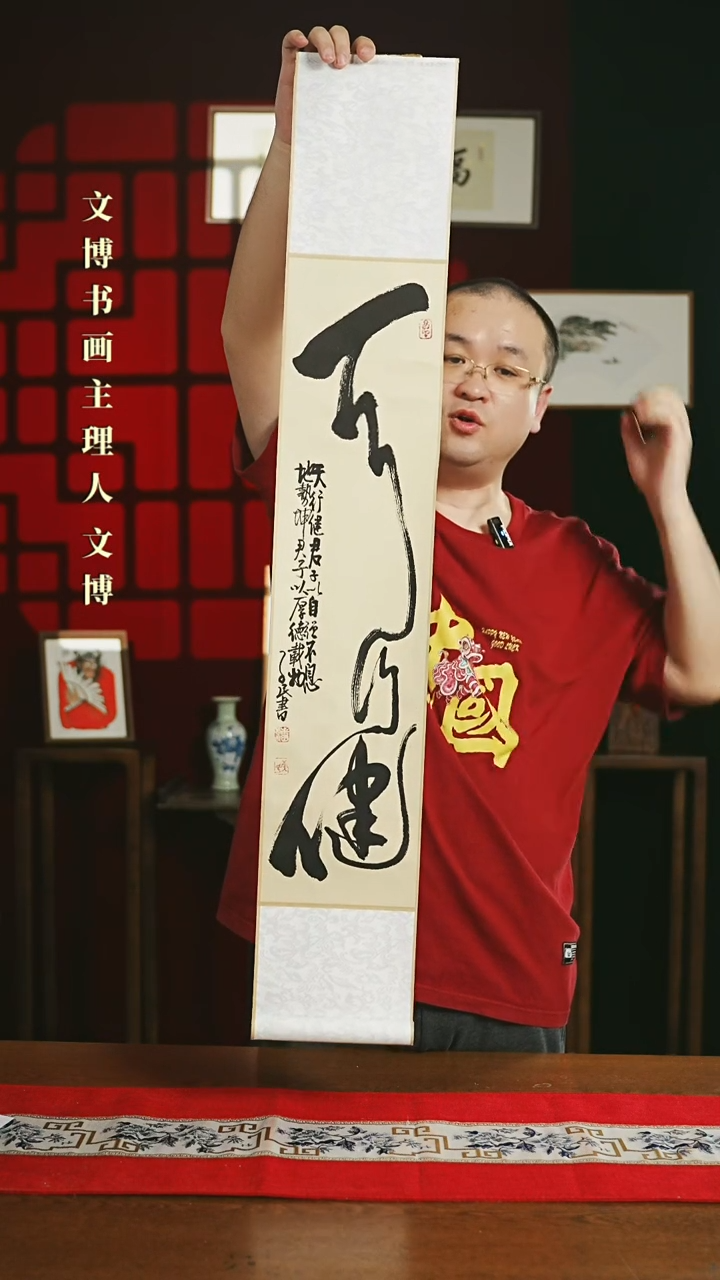 文博书画主理人文博
天行健
天行健君子以自强不息
地势坤君子以厚德载物
书
福
中国
HAPPY NEW YEAR
GOOD LUCK